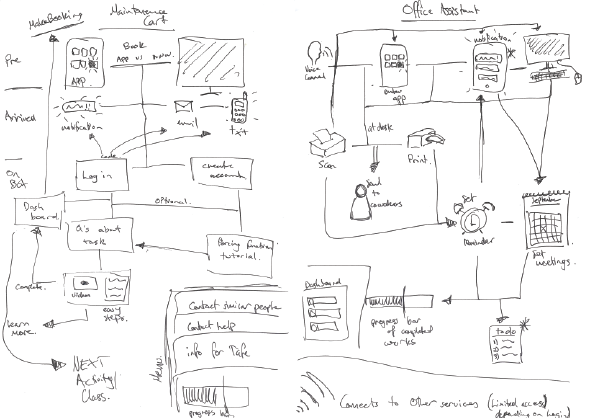 Make Booking
Maintenance
Cart
Pre
APP
Book
App vs
Arrived
notification
email
txt
code
On
Log in
create
Dash
board.
optional.
Q's about
task
tutorial.
Complete.
video
easy
steps.
learn
more.
NEXT
Activity/
Class.
Menu.
Contact similar people
Contact help
info for Tafe
progress bar
Office Assistant
Voice
Command
app
notification
at desk
Scan
Print.
Send
to
coworkers
Set
Reminder
September
Set
meetings.
Dashboard
1)
2)
3)
progress bar
of completed
works
to do
1)
2)
3)
Connects to Other services (Limited access)
depending on Login